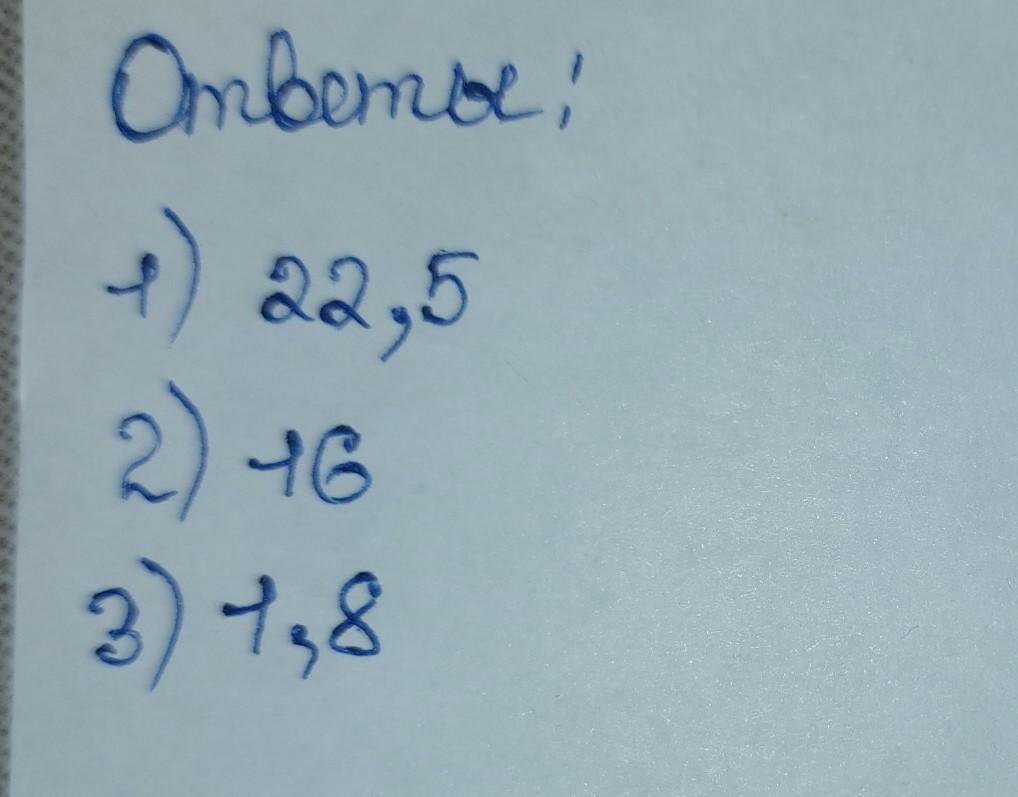 Ответы:
1) 22,5
2) 16
3) 1,8